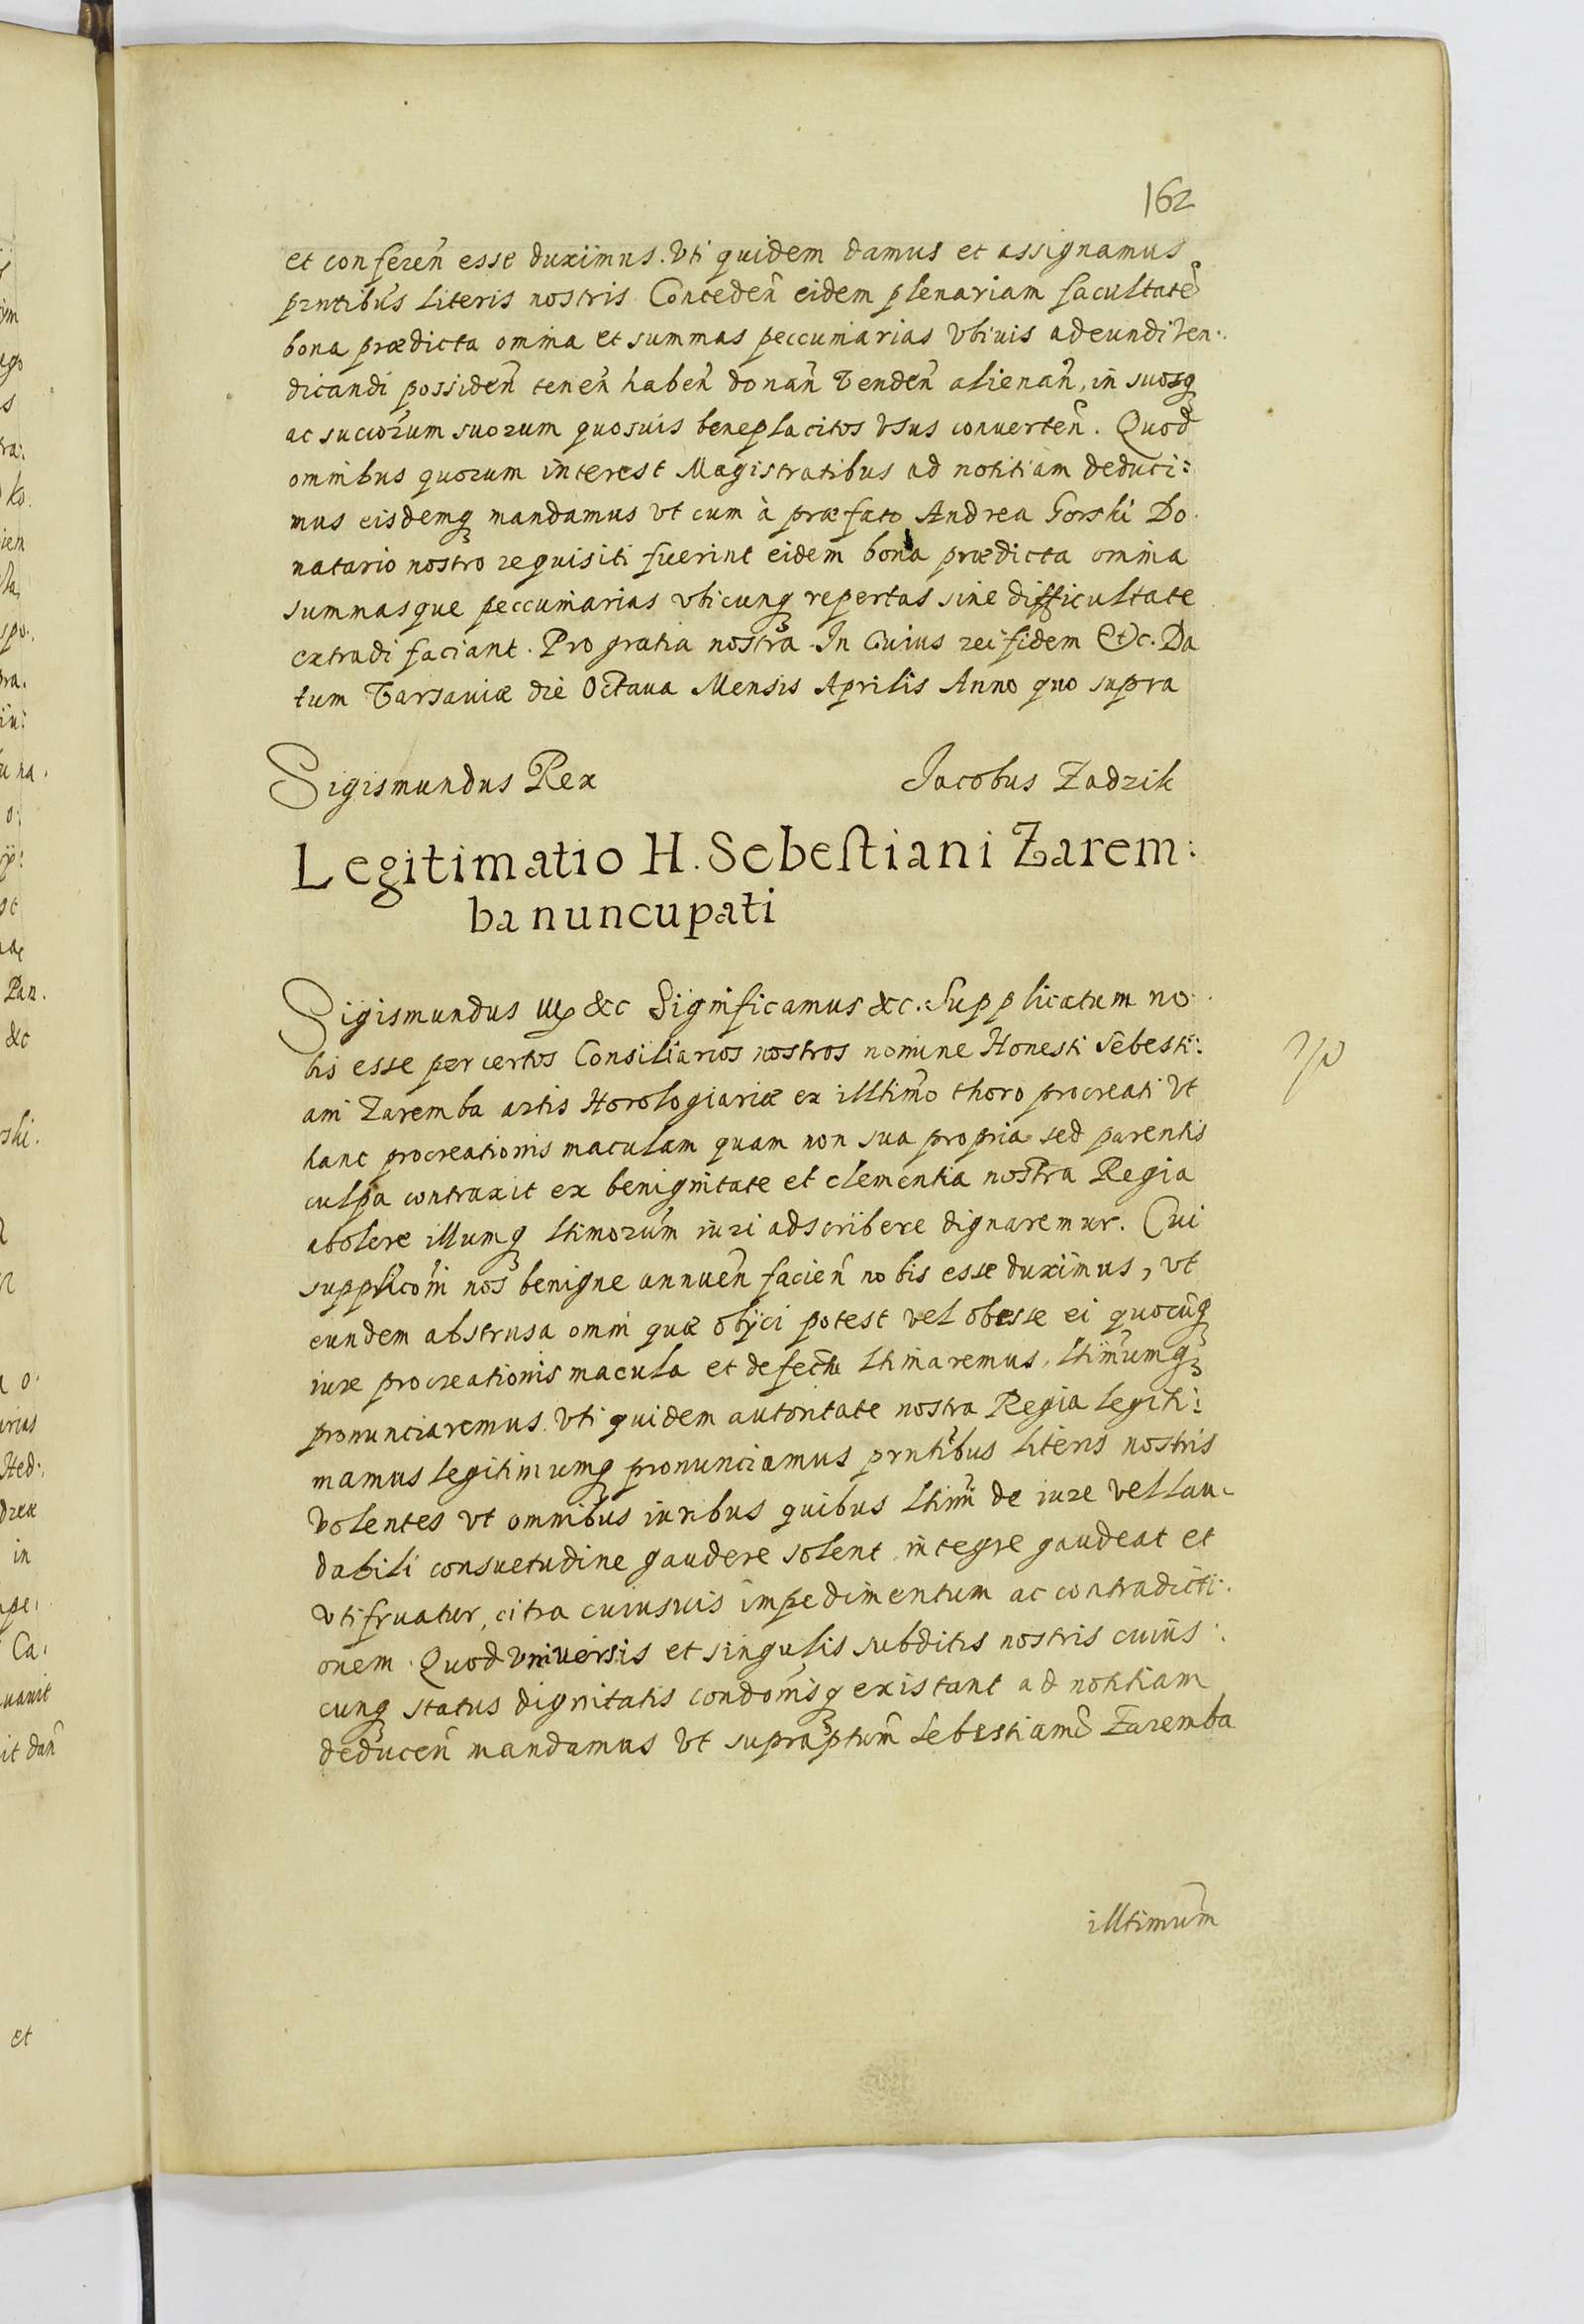 162
et conferen̄ esse duximus. Vti quidem damus et assignamus
prntibus literis nostris Conceden̄ eidem plenariam facultatē
bona prædicta omnia et summas peccuniarias vbiuis adeundi ven.
dicandi possiden̄ tenen̄ haben̄ donan̄ venden̄ alienan̄, in suosq̃
ac succorum suorum quosuis beneplacitos vsus conuerten̄. Quod
omnibus quorum interest Magistratibus ad notitiam deduci:
mus eisdemq̃ mandamus vt cum à præfato Andrea Gorski Do.
natario nostro requisiti fuerint eidem bona prædicta omnia
summasque peccuniarias vbicunq̃ repertas sine difficultate
extradi faciant. Pro gratia nostra. In Cuius rei fidem Etc. Da
tum Varsaviæ die Octaua Mensis Aprilis Anno quo supra
Sigismundus Rex Jacobus Zadzik
Legitimatio H. Sebestiani Zarem:
ba nuncupati
Sigismundus &c Significamus &c. Supplicatum no.
bis esse per certos Consiliarios nostros nomine Honesti Sebesti:
ani Zaremba artis Horologiariæ ex illtimo thoro procreati vt
hanc procreationis maculam quam non sua propria sed parentis
culpa contraxit ex benignitate et clementia nostra Regia
abolere illumq̃ ltimorum iuri adscribere dignaremur. Cui
supplicōni nos benigne annuen̄ facien̄ nobis esse duximus, vt
eundem abstrusa omni quæ obijci potest vel obesse ei quocūq̃
iure procreationis macula et defectu ltimaremus, ltimumq̃
pronunciaremus. Vti quidem autoritate nostra Regia legiti:
mamus legitimumq̃ pronunciamus prntibus literis nostris
Volentes vt omnibus iuribus quibus ltimi de iure vel lau-
dabili consuetudine gaudere solent integre gaudeat et
vtifruatur, citra cuiusuis impedimentum ac contradicti.
onem. Quod vniuersis et singulis subditis nostris cuius.
cunq̃ status dignitatis condōnisq̃ existant ad notitiam
deducen̄ mandamus vt supraptum Sebestianū Zaremba
illtimum